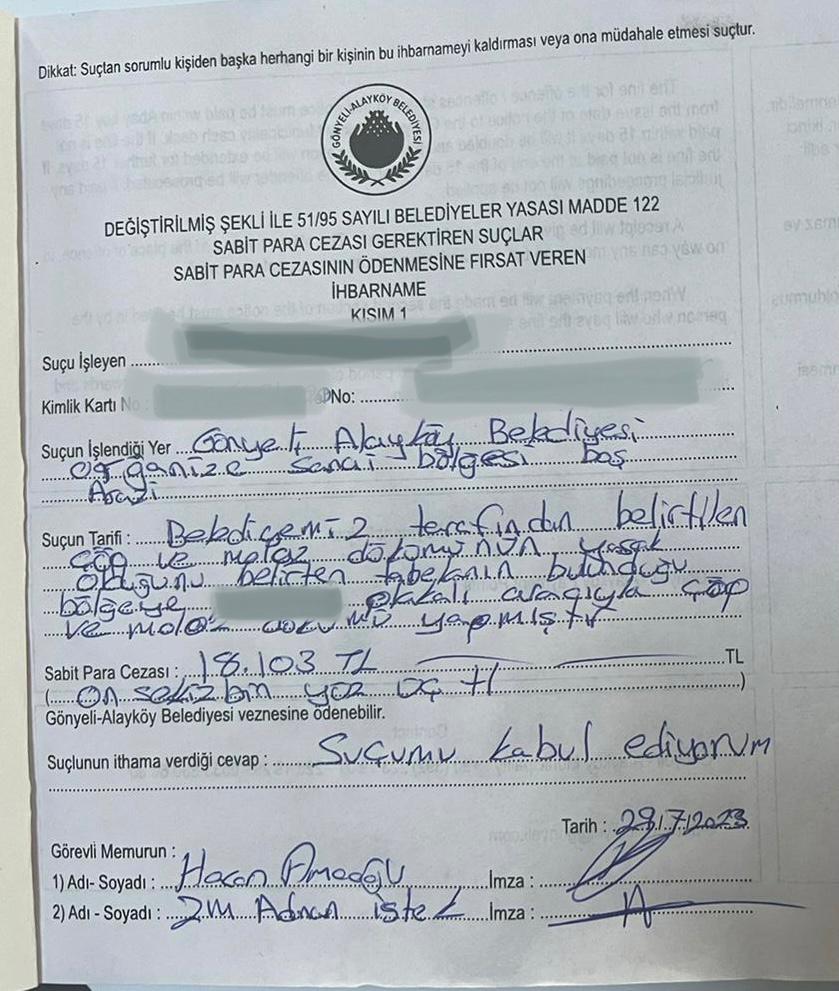 Dikkat: Suçtan sorumlu kişiden başka herhangi bir kişinin bu ihbarnameyi kaldırması veya ona müdahale etmesi suçtur.
GÖNYELİ-ALAYKÖY BELEDİYESİ
DEĞİŞTİRİLMİŞ ŞEKLİ İLE 51/95 SAYILI BELEDİYELER YASASI MADDE 122
SABİT PARA CEZASI GEREKTİREN SUÇLAR
SABİT PARA CEZASININ ÖDENMESİNE FIRSAT VEREN
İHBARNAME
KISIM 1
Suçu İşleyen
Kimlik Kartı No: No:
Suçun İşlendiği Yer Gönyeli Alayköy Belediyesi
organize sanai bölgesi boş
Arazi
Suçun Tarifi : Belediyemiz terafından belirtilen
çöp ve moloz dökümünün yasak
olduğunu belirten tabelanın bulunduğu
bölgeye plakalı araçıyla çöp
ve moloz dökümü yapmıştır
Sabit Para Cezası : 18.103 TL TL
(on sekiz bin yüz üç tl)
Gönyeli-Alayköy Belediyesi veznesine ödenebilir.
Suçlunun ithama verdiği cevap : Suçumu kabul ediyorum
Tarih : 29/7/2023
Görevli Memurun :
1) Adı- Soyadı : Hasan İmza :
2) Adı - Soyadı : ZM Adnan istek İmza :